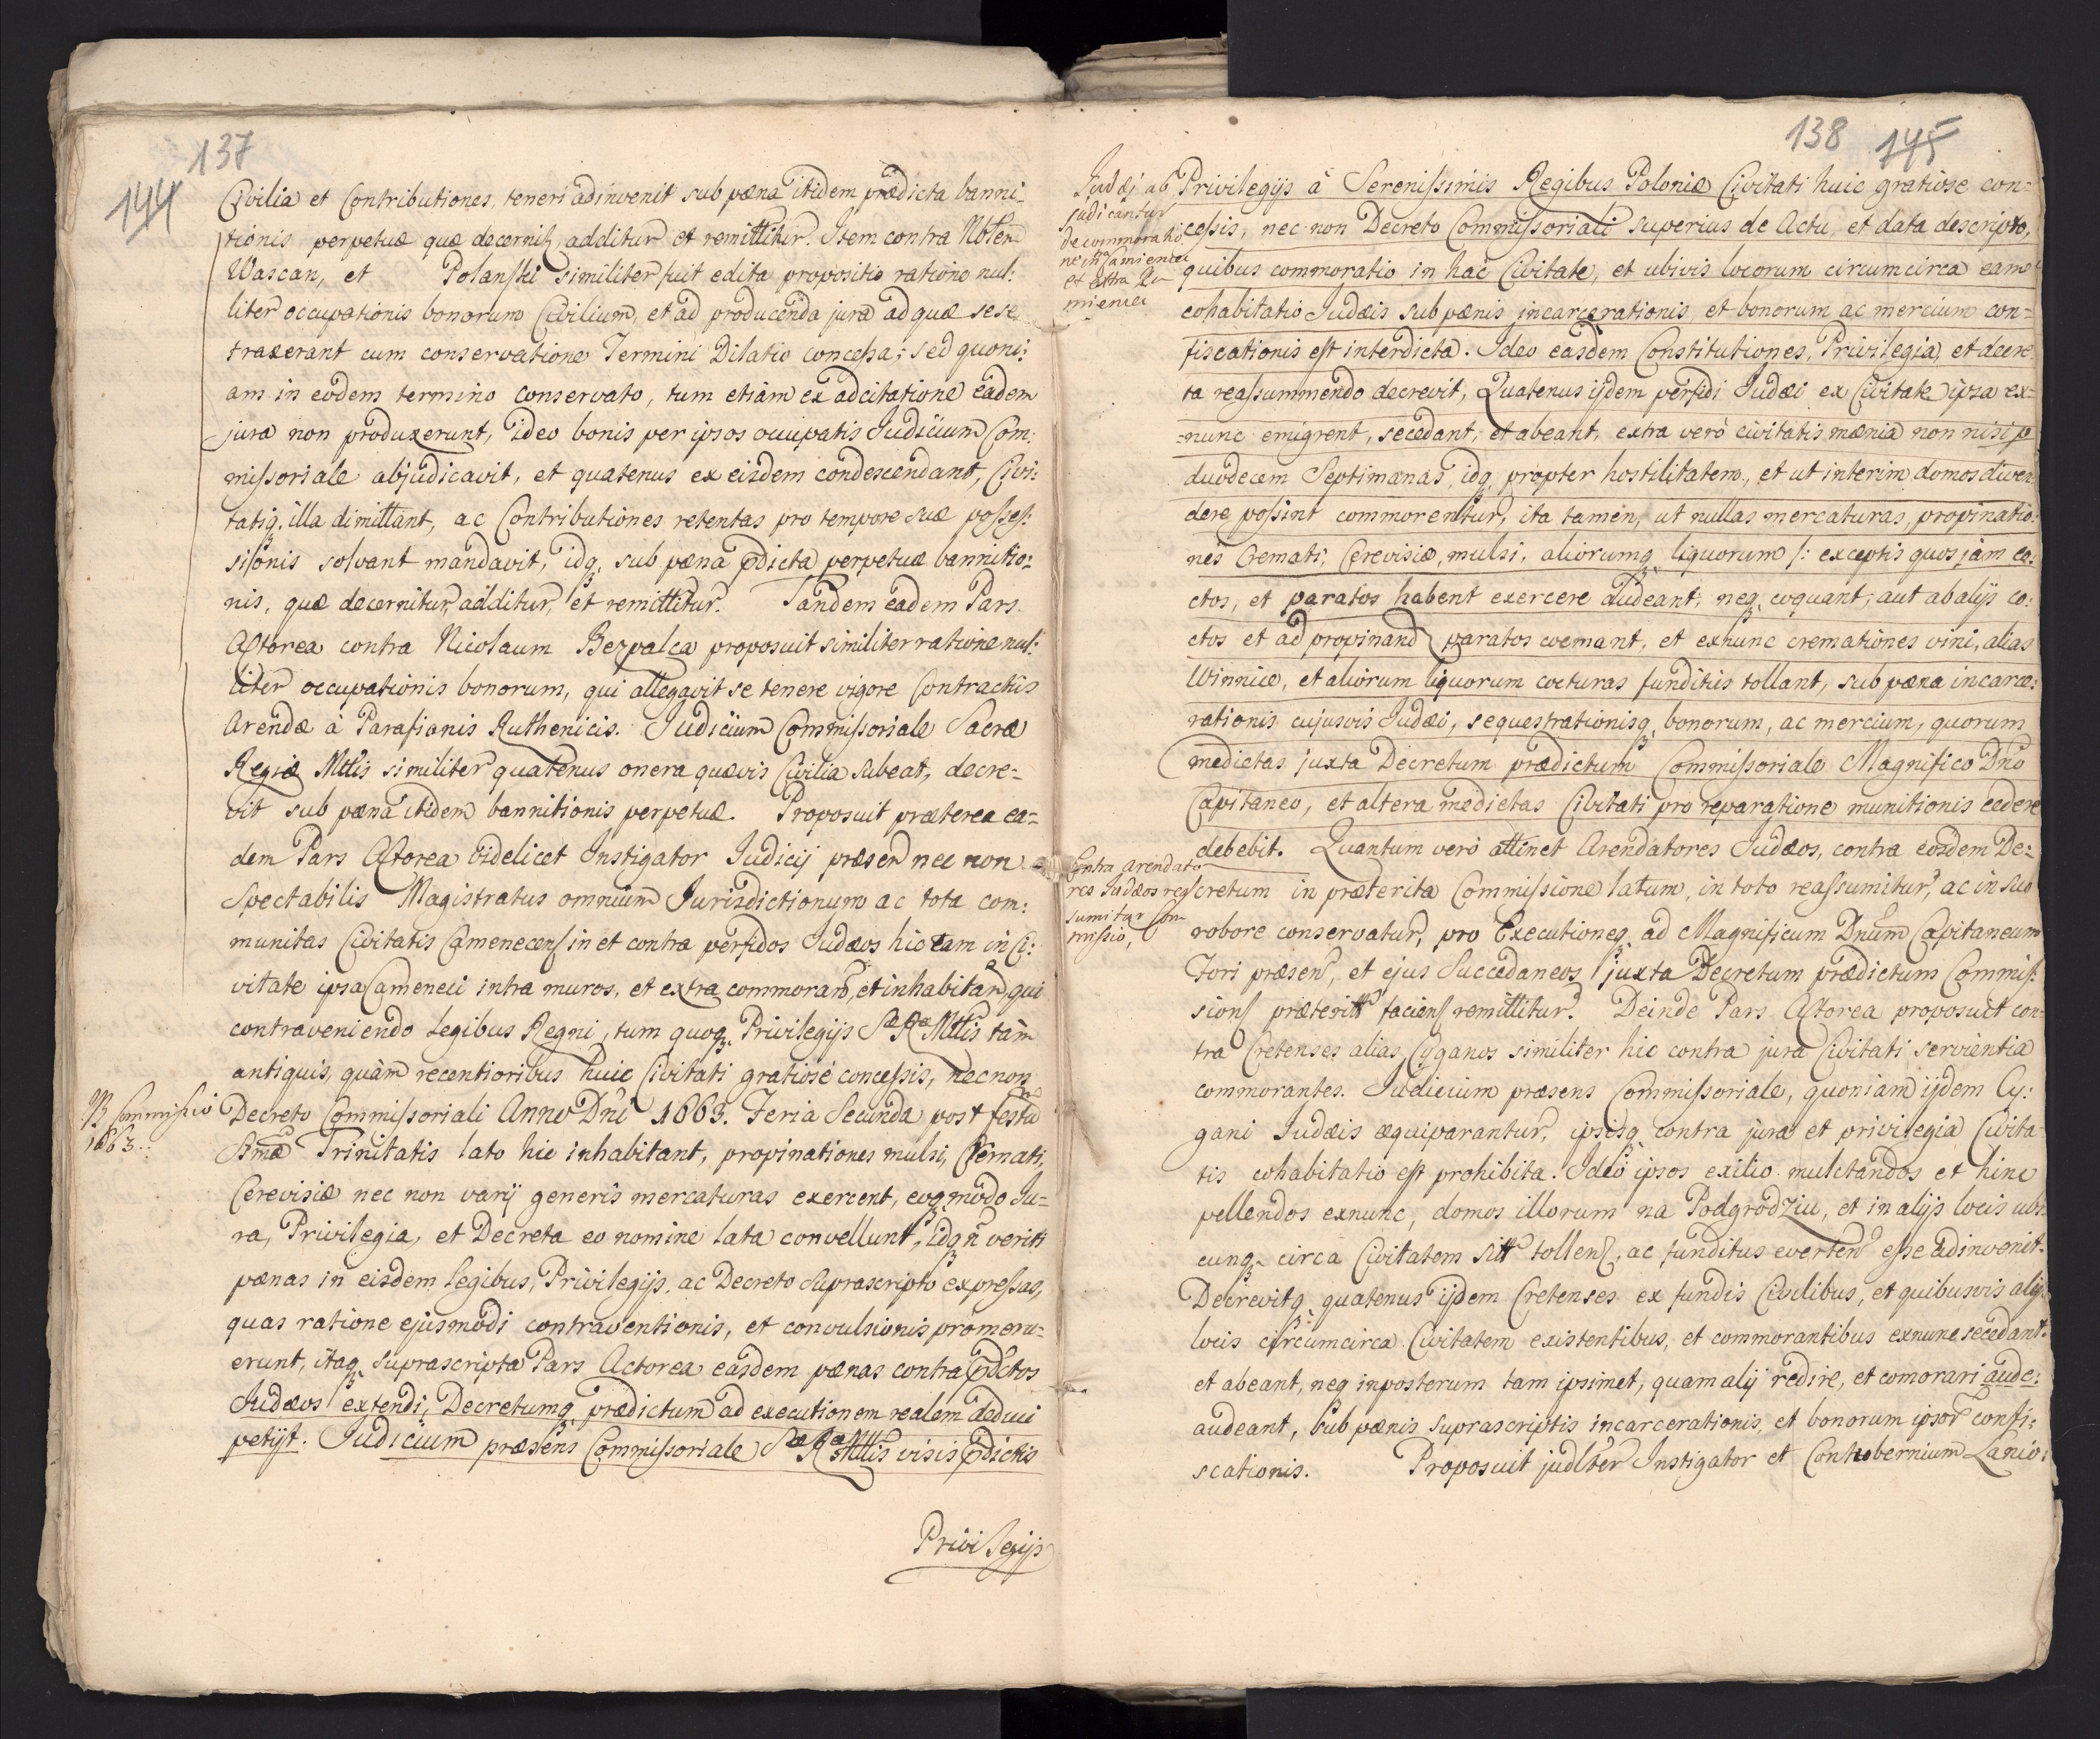 137
144
Civilia et Contributiones, teneri adinvenit sub pœna itidem prædicta banni-
tionis perpetuæ quæ decernitz, additur et remittitur. Item contra Nblem
Wascan, et Polanski similiter fuit edita propositio ratione nul:
liter occupationis bonorum Civilium, et ad producenda jura ad quæ sese
traxerant cum conservatione Termini Dilatio concessa; sed quoni:
am in eodem termino conservato, tum etiam ex adcitatione eadem
jura non produxerunt, ideo bonis per ipsos occupatis Judicium Com:
missoriale abjudicavit, et quatenus ex eisdem condescendant, Civi:
tatiq, illa dimittant, ac Contributiones retentas pro tempore suæ posses:
sionis solvant mandavit, idq, sub pœna pdicta perpetuæ bannitio:
nis, quæ decernitur, additur, et remittitur. Tandem eadem Pars
Actorea contra Nicolaum Bezpalca proposuit similiter ratione nul:
liter occupationis bonorum, qui allegavit se tenere vigore Contractus
Arendæ à Parasianis Ruthenicis. Judicium Commissoriale Sacræ
Regiæ Mttis similiter quatenus onera quævis Civilia subeat, decre-
vit sub pœna itidem bannitionis perpetuæ. Proposuit præterea ea=
dem Pars Actorea videlicet Instigator Judicij præsen nec non
Spectabilis Magistratus omnium Jurisdictionum ac tota com:
munitas Civitatis Camenecens in et contra perfidos Judæos hic tam in Ci:
vitate ipsa Cameneci intra muros, et extra commoran, et inhabitan, qui
contraveniendo Legibus Regni, tum quoq, Privilegijs Sæ Ræ Mttis tam
antiquis, quàm recentioribus huic Civitati gratiosè concessis, necnon
NB Commissio
1663.:
Decreto Commissoriali Anno Dni 1663. Feria Secunda post festū
Ssmæ Trinitatis lato hic inhabitant, propinationes mulsi, Cremati,
Cerevisiæ nec non varij generis mercaturas exercent, eoq, modo Ju=
ra, Privilegia, et Decreta eo nomine lata convellunt, idq, n veriti
pœnas in eisdem Legibus, Privilegijs, ac Decreto Suprascripto expressas,
quas ratione ejusmodi contraventionis, et convulsionis promeru=
erunt, itaq, suprascripta Pars Actorea easdem pœnas contra pdctos
Judæos extendi, Decretumq, prædictum ad executionem realem deduci
petijt. Judicium præsens Commissoriale Sæ Ræ Mttis visis pdictis
Privilegijs
138 145
Judæi ab
judicantur
de commoratio
ne in Camienca
et extra Ca
mienca
Privilegijs à Serenissimis Regibus Poloniæ Civitati huic gratiose con=
cessis, nec non Decreto Commissoriali superius de Actu, et data descripto,
quibus commoratio in hac Civitate, et ubivis locorum circumcirca eam
cohabitatio Judæis sub pœnis incarcerationis, et bonorum ac mercium con=
fiscationis est interdicta. Ideo easdem Constitutiones, Privilegia, et decre
ta reassummendo decrevit, Quatenus ijdem perfidi Judæi ex Civitate ipsa ex=
=nunc emigrent, secedant, et abeant, extra verò civitatis mœnia non nisi p
duodecem Septimanas, idq, propter hostilitatem, et ut interim domos diven
dere possint commorentur, ita tamen, ut nullas mercaturas, propinatio:
nes Cremati, Cerevisiæ, mulsi, aliorumq, liquorum /: exceptis quos jam co:
ctos, et paratos habent exercere audeant, neq, coquant, aut ab alijs co:
ctos et ad propinand paratos coemant, et exnunc cremationes vini, alias
Winnice, et aliorum liquorum cocturas funditus tollant, sub pœna incarce:
rationis cujusvis Judæi, sequestrationisq, bonorum, ac mercium, quorum
medietas juxta Decretum prædictum Commissoriale Magnifico Dno
Capitaneo, et altera medietas Civitati pro reparatione munitionis cedere
debebit. Quantum verò attinet Arendatores Judæos, contra eosdem De:
Contra Arendato
res Judæos reas
sumitur Com
missio,
cretum in præterita Commissione latum, in toto reassumitur, ac in suo
robore conservatur, pro Executioneq, ad Magnificum Dnum Capitaneum
Fori præsen, et ejus Succedaneos juxta Decretum prædictum Commis:
sions præteritt faciens remittitur. Deinde Pars Actorea proposuit con=
tra Cretenses alias Cyganos similiter hic contra jura Civitati servientia
commorantes. Judicium præsens Commissoriale, quoniam ijdem Cy:
gani Judæis æquiparantur, ipsisq, contra jura et privilegia Civita-
tis cohabitatio est prohibita. Ideo ipsos exilio mulctandos et hinc
pellendos exnunc, domos illorum na Podgrodziu, et in alijs locis ubi
cunq, circa Civitatem sitt tollens, ac funditus everten esse adinvenit.
Decrevitq, quatenus ijdem Cretenses ex fundis Civilibus, et quibusvis alijs
locis circumcirca Civitatem existentibus, et commorantibus exnunc secedant.
et abeant, neq inposterum tam ipsimet, quam alij redire, et comorari aude:
audeant, sub pœnis suprascriptis incarcerationis, et bonorum ipsor confi:
scationis. Proposuit judlter Instigator et Contubernium Lanio: